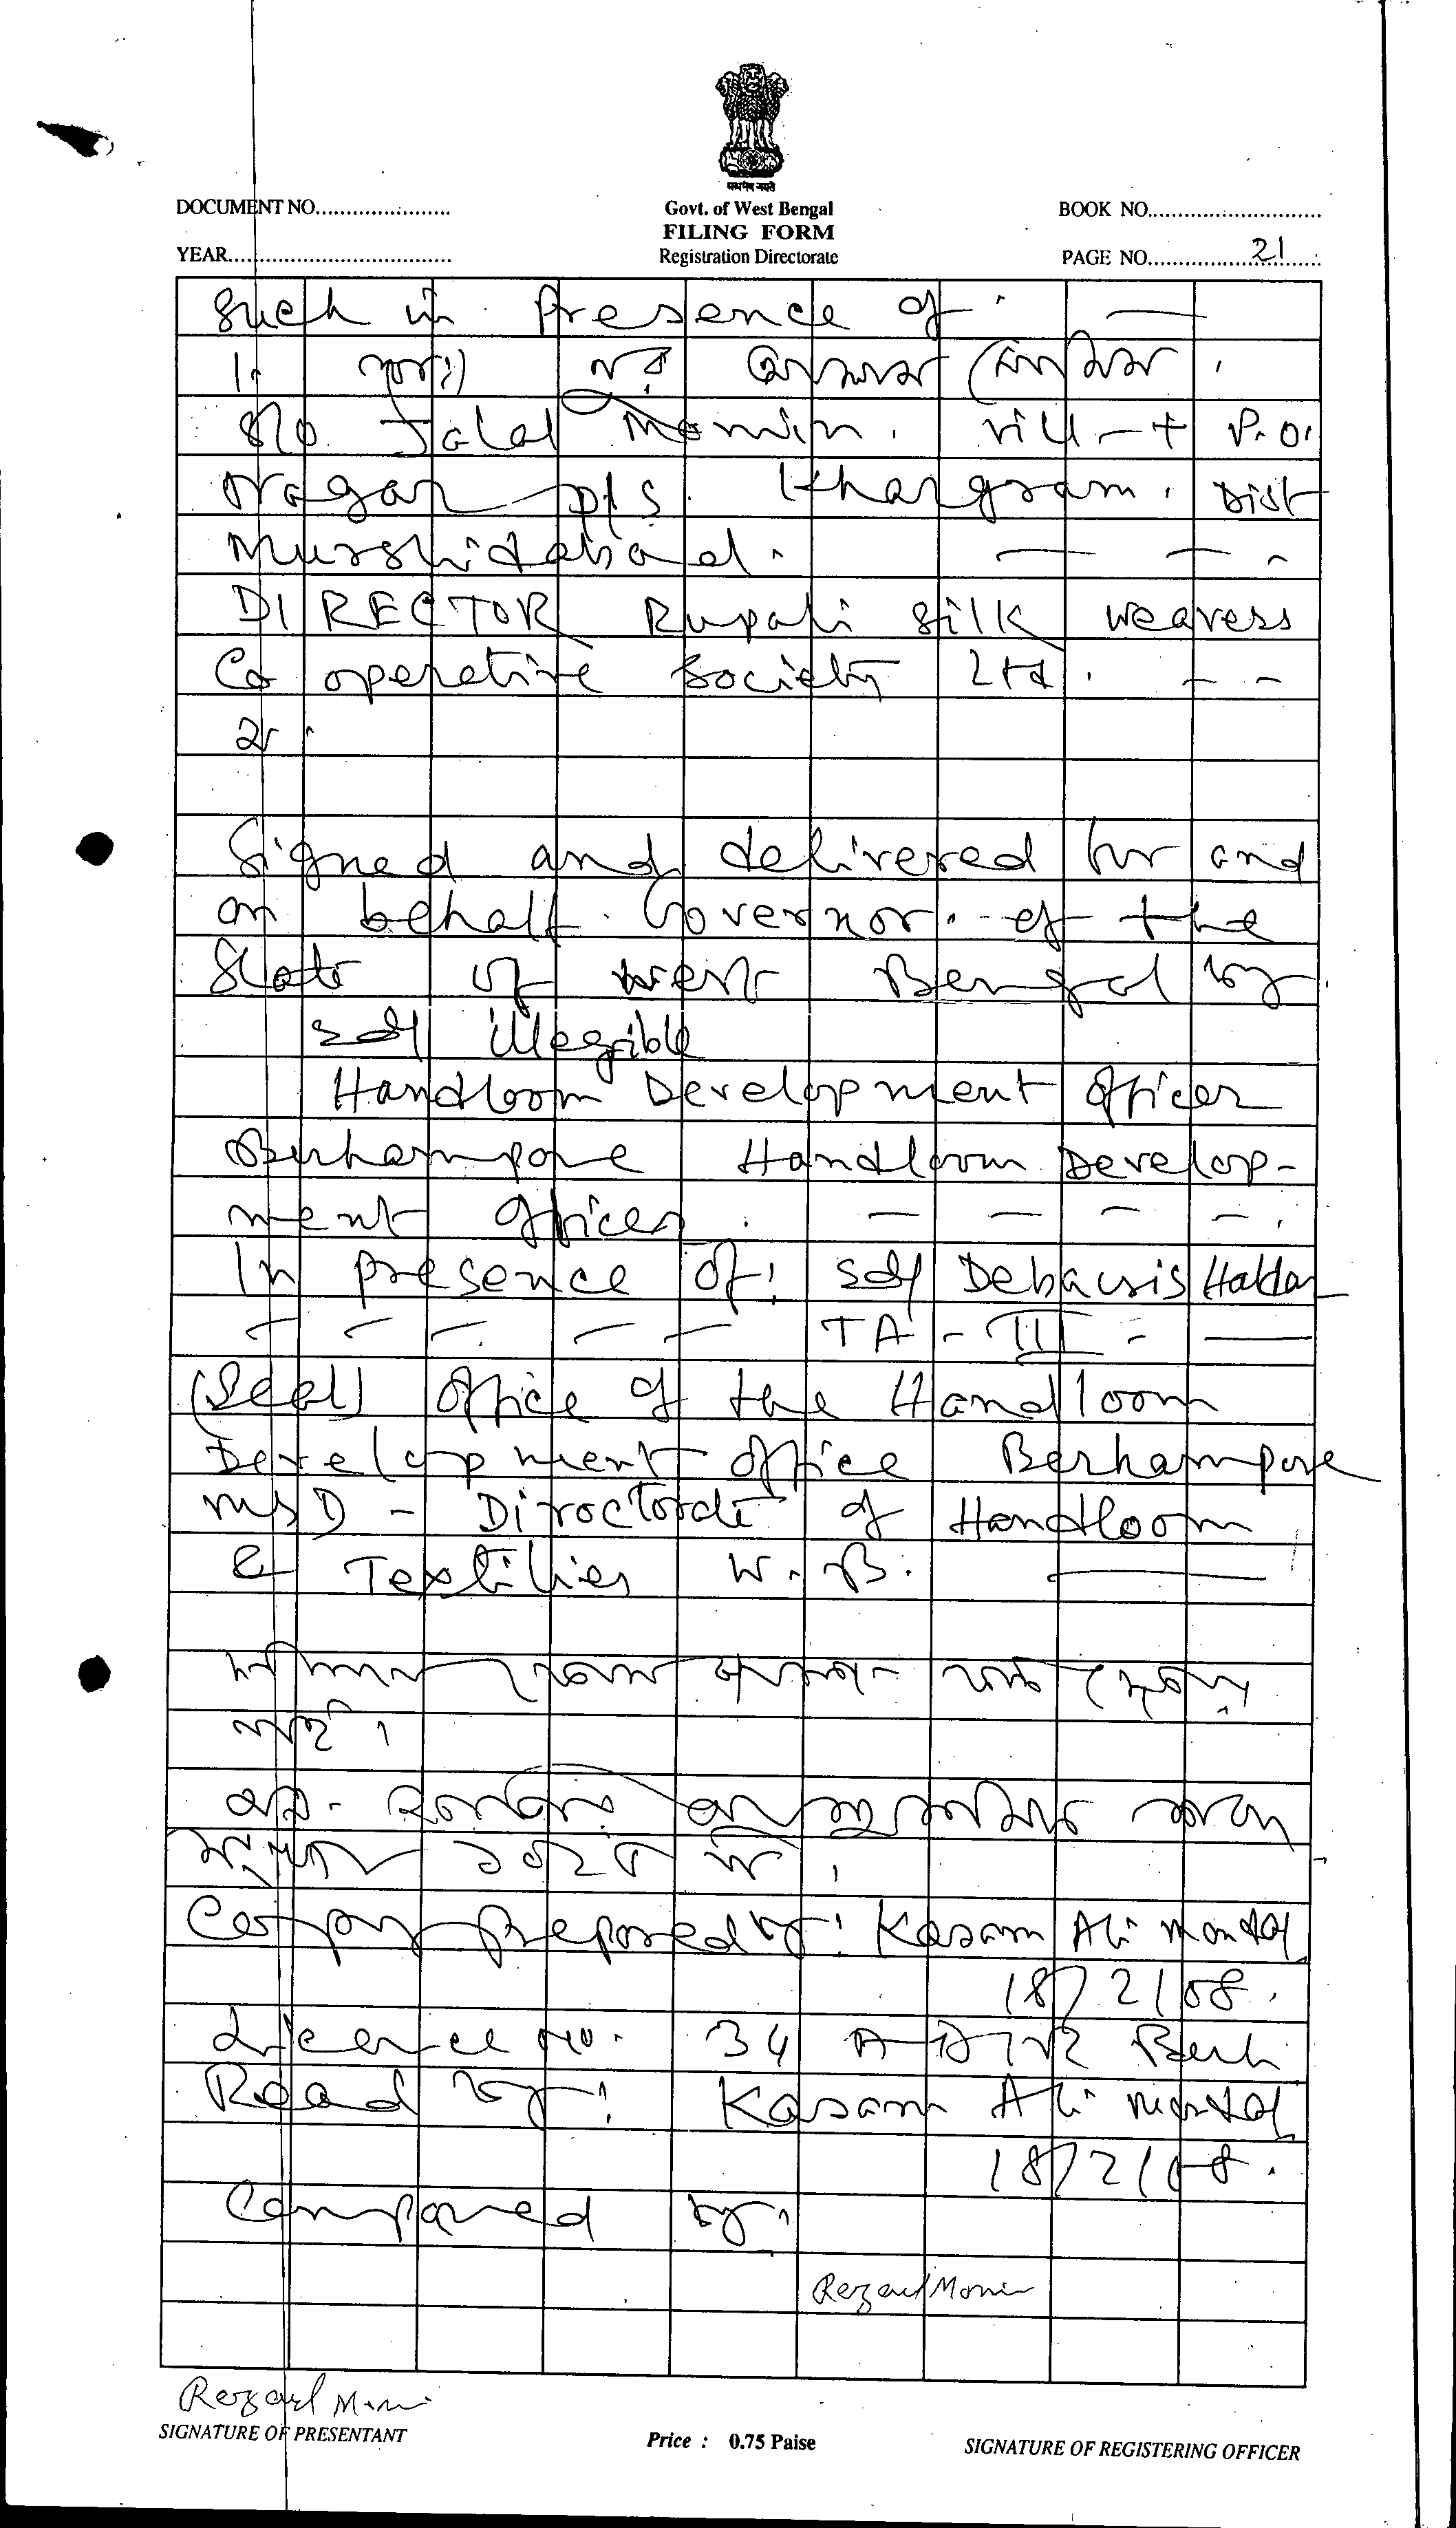 सत्यमेव जयते
DOCUMENT NO......................
Govt. of West Bengal
BOOK NO.............................
FILING FORM
YEAR......................................
Registration Directorate
PAGE NO......................21......
Such in Presence of. —
1.
S/o Jalal Momin. Vill - + P.O.
Nagar P/S. Khargram. Dist
Murshidabad. — — -
DIRECTOR Rupali Silk weavers
Co operative Society Ltd. - -
২।
Signed and delivered for and
on behalf. Governor. of the
State of West Bengal by
Sd/ illegible
Handloom Development Officer
Berhampore Handloom Develop-
ment Officer. — — — —.
In presence of: Sd/ Debasis Haldar
— — — — — TA - III - —
(Seal) Office of the Handloom
Development Office Berhampore
MSD - Directorate of Handloom
& Textilies W. B. —
নাই।
Copy Prepared by: Kasam Ali Mondal
18/2/08.
Licence no. 34 Berh
Read by: Kasam Ali Mondal
18/2/08.
Compared by:
Rezaul Momin
Rezaul Momin
SIGNATURE OF PRESENTANT
Price : 0.75 Paise
SIGNATURE OF REGISTERING OFFICER